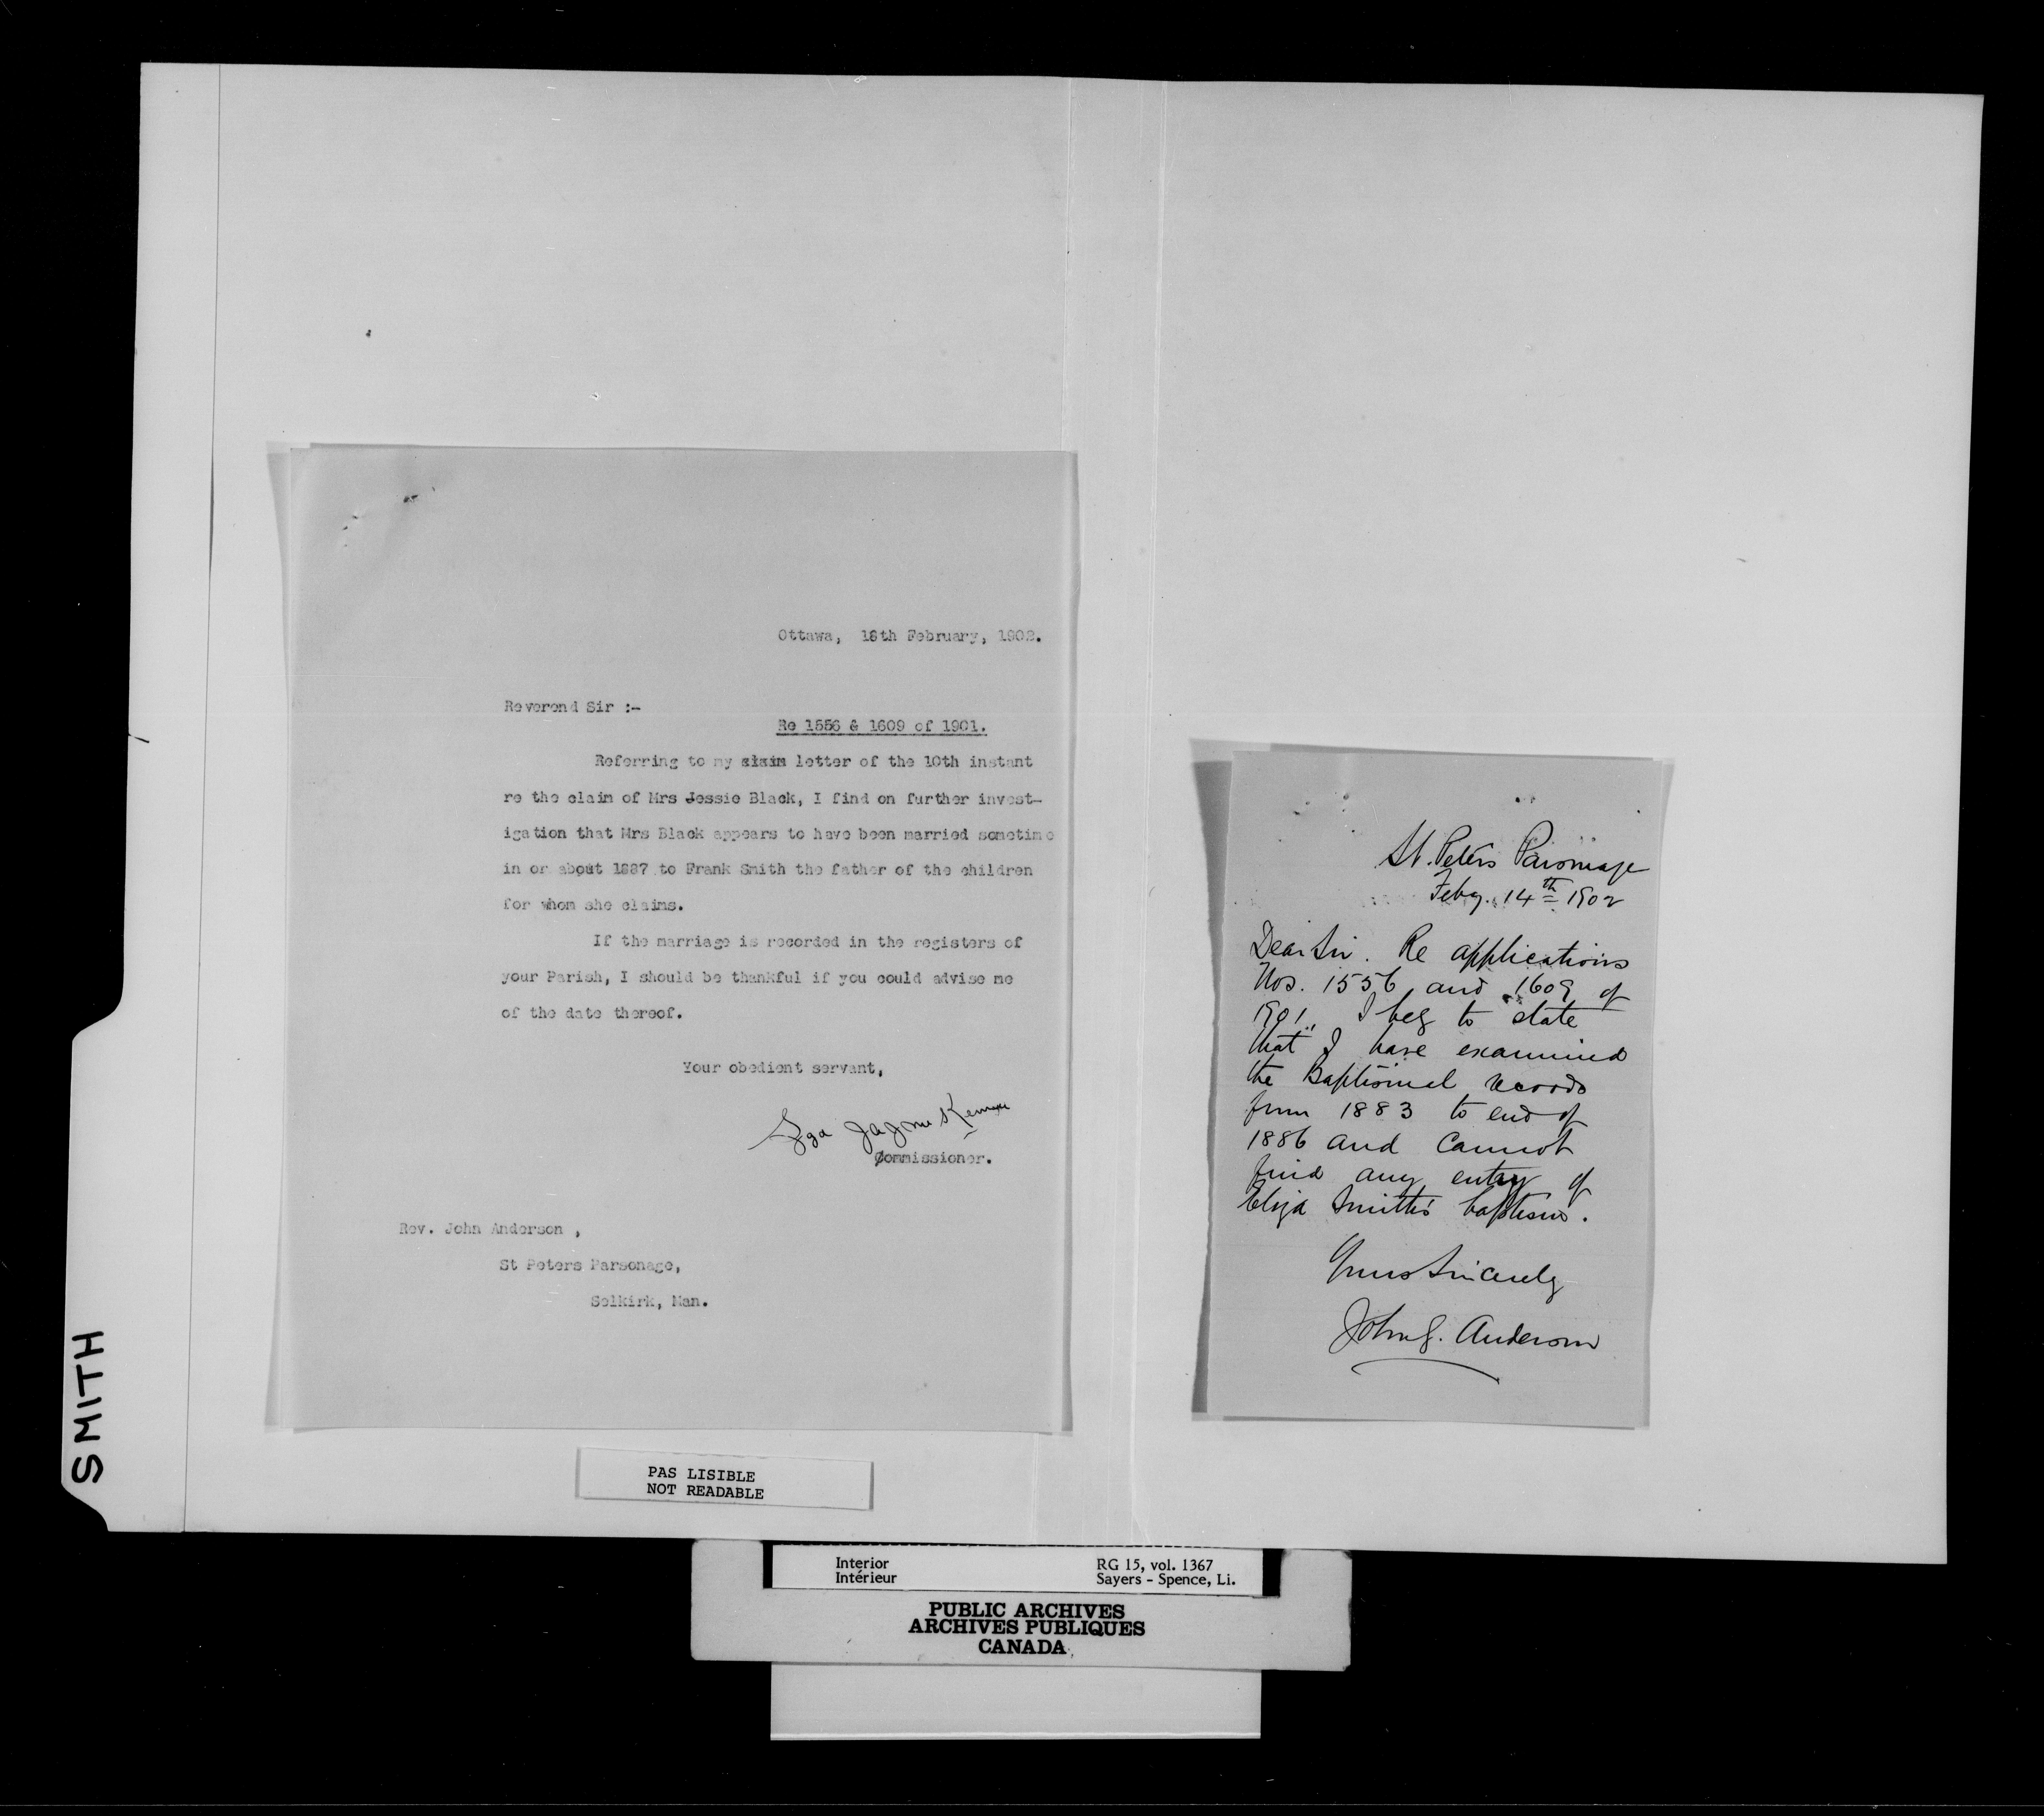 Ottawa, 18th February, 1902.
Reverend Sir :-
Re 1556 & 1609 of 1901.
Referring to my claim letter of the 10th instant
re the claim of Mrs Jessie Black, I find on further invest-
igation that Mrs Black appears to have been married sometime
in or about 1887 to Frank Smith the father of the children
for whom she claims.
If the marriage is recorded in the registers of
your Parish, I should be thankful if you could advise me
of the date thereof.
Your obedient servant,
Sgd
Commissioner.
Rev. John Anderson ,
St Peters Parsonage,
Selkirk, Man.
St. Peters Parsonage
Feby. 14th 1902
Dear Sir. Re applications
Nos. 1556 and 1609 of
1901, I beg to state
that I have examined
the Baptismal records
from 1883 to end of
1886 and cannot
find any entry of
Eliza Smith's baptism.
Yours Sincerely
John G. Anderson
SMITH
PAS LISIBLE
NOT READABLE
Interior
Intérieur
RG 15, vol. 1367
Sayers - Spence, Li.
PUBLIC ARCHIVES
ARCHIVES PUBLIQUES
CANADA